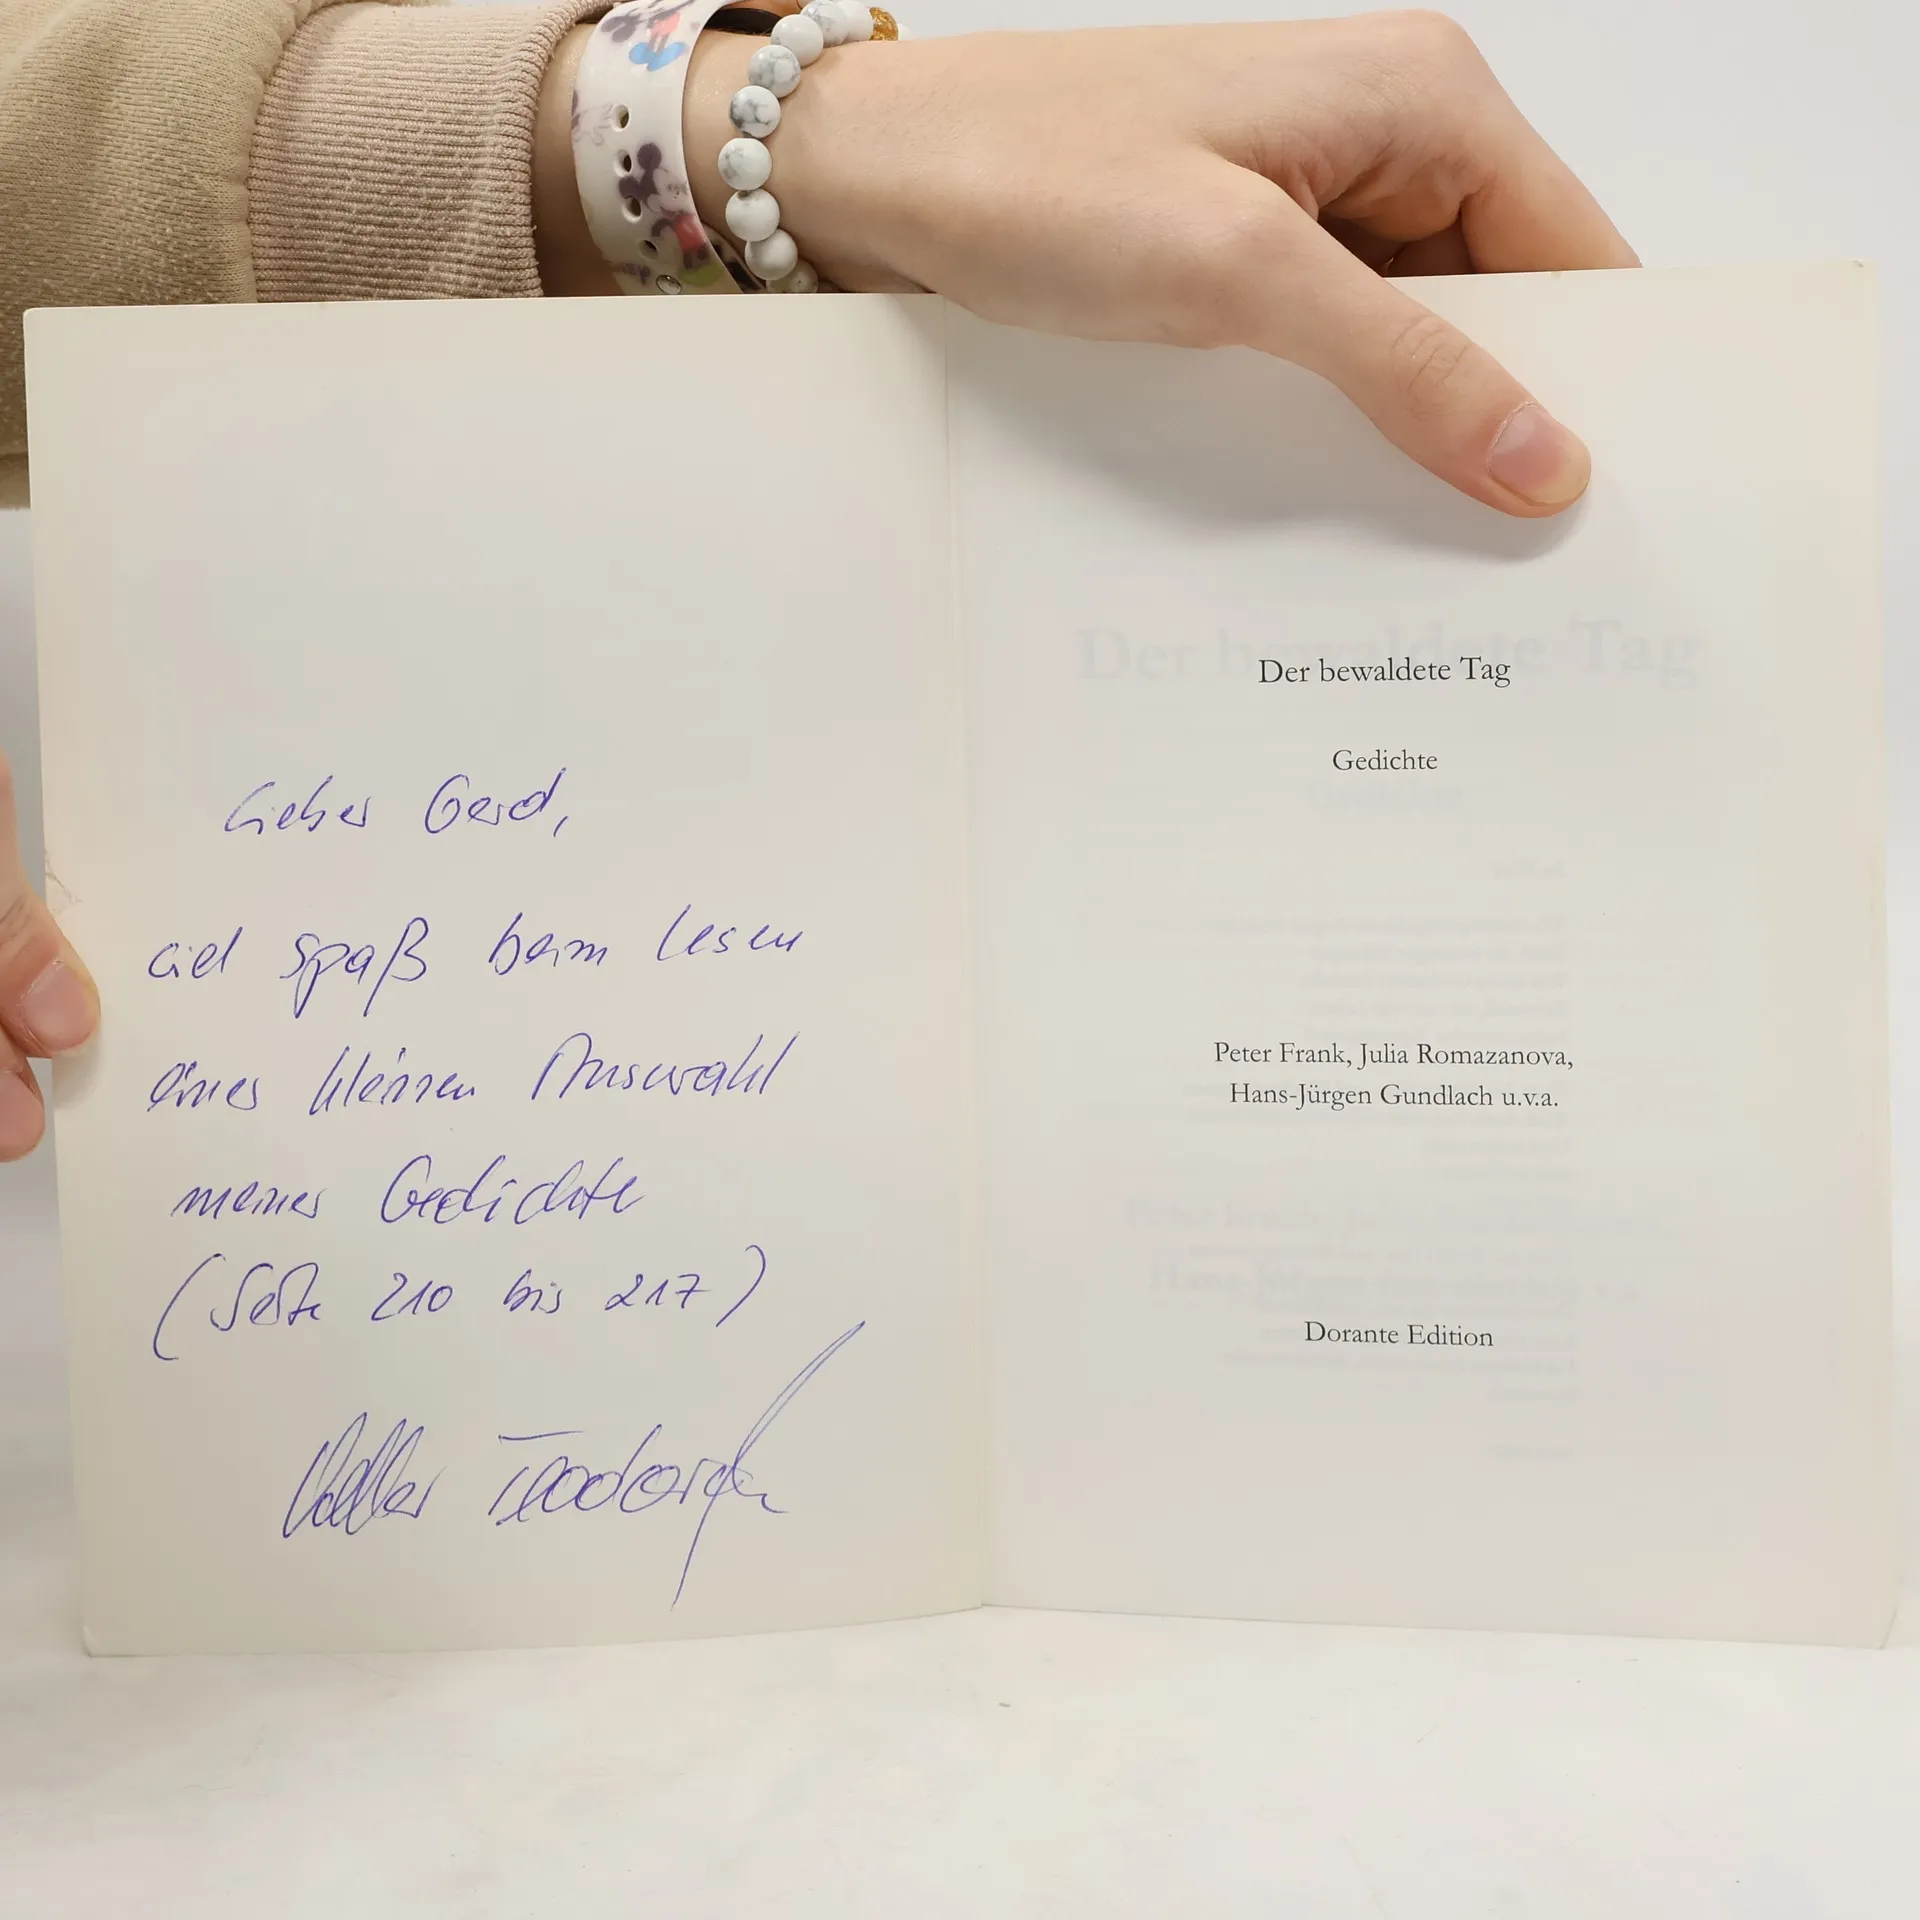 Lieber Gerd,
viel Spaß beim Lesen
einer kleinen Auswahl
meiner Gedichte
(Seite 210 bis 217)
Der bewaldete Tag
Gedichte
Peter Frank, Julia Romazanova,
Hans-Jürgen Gundlach u.v.a.
Dorante Edition